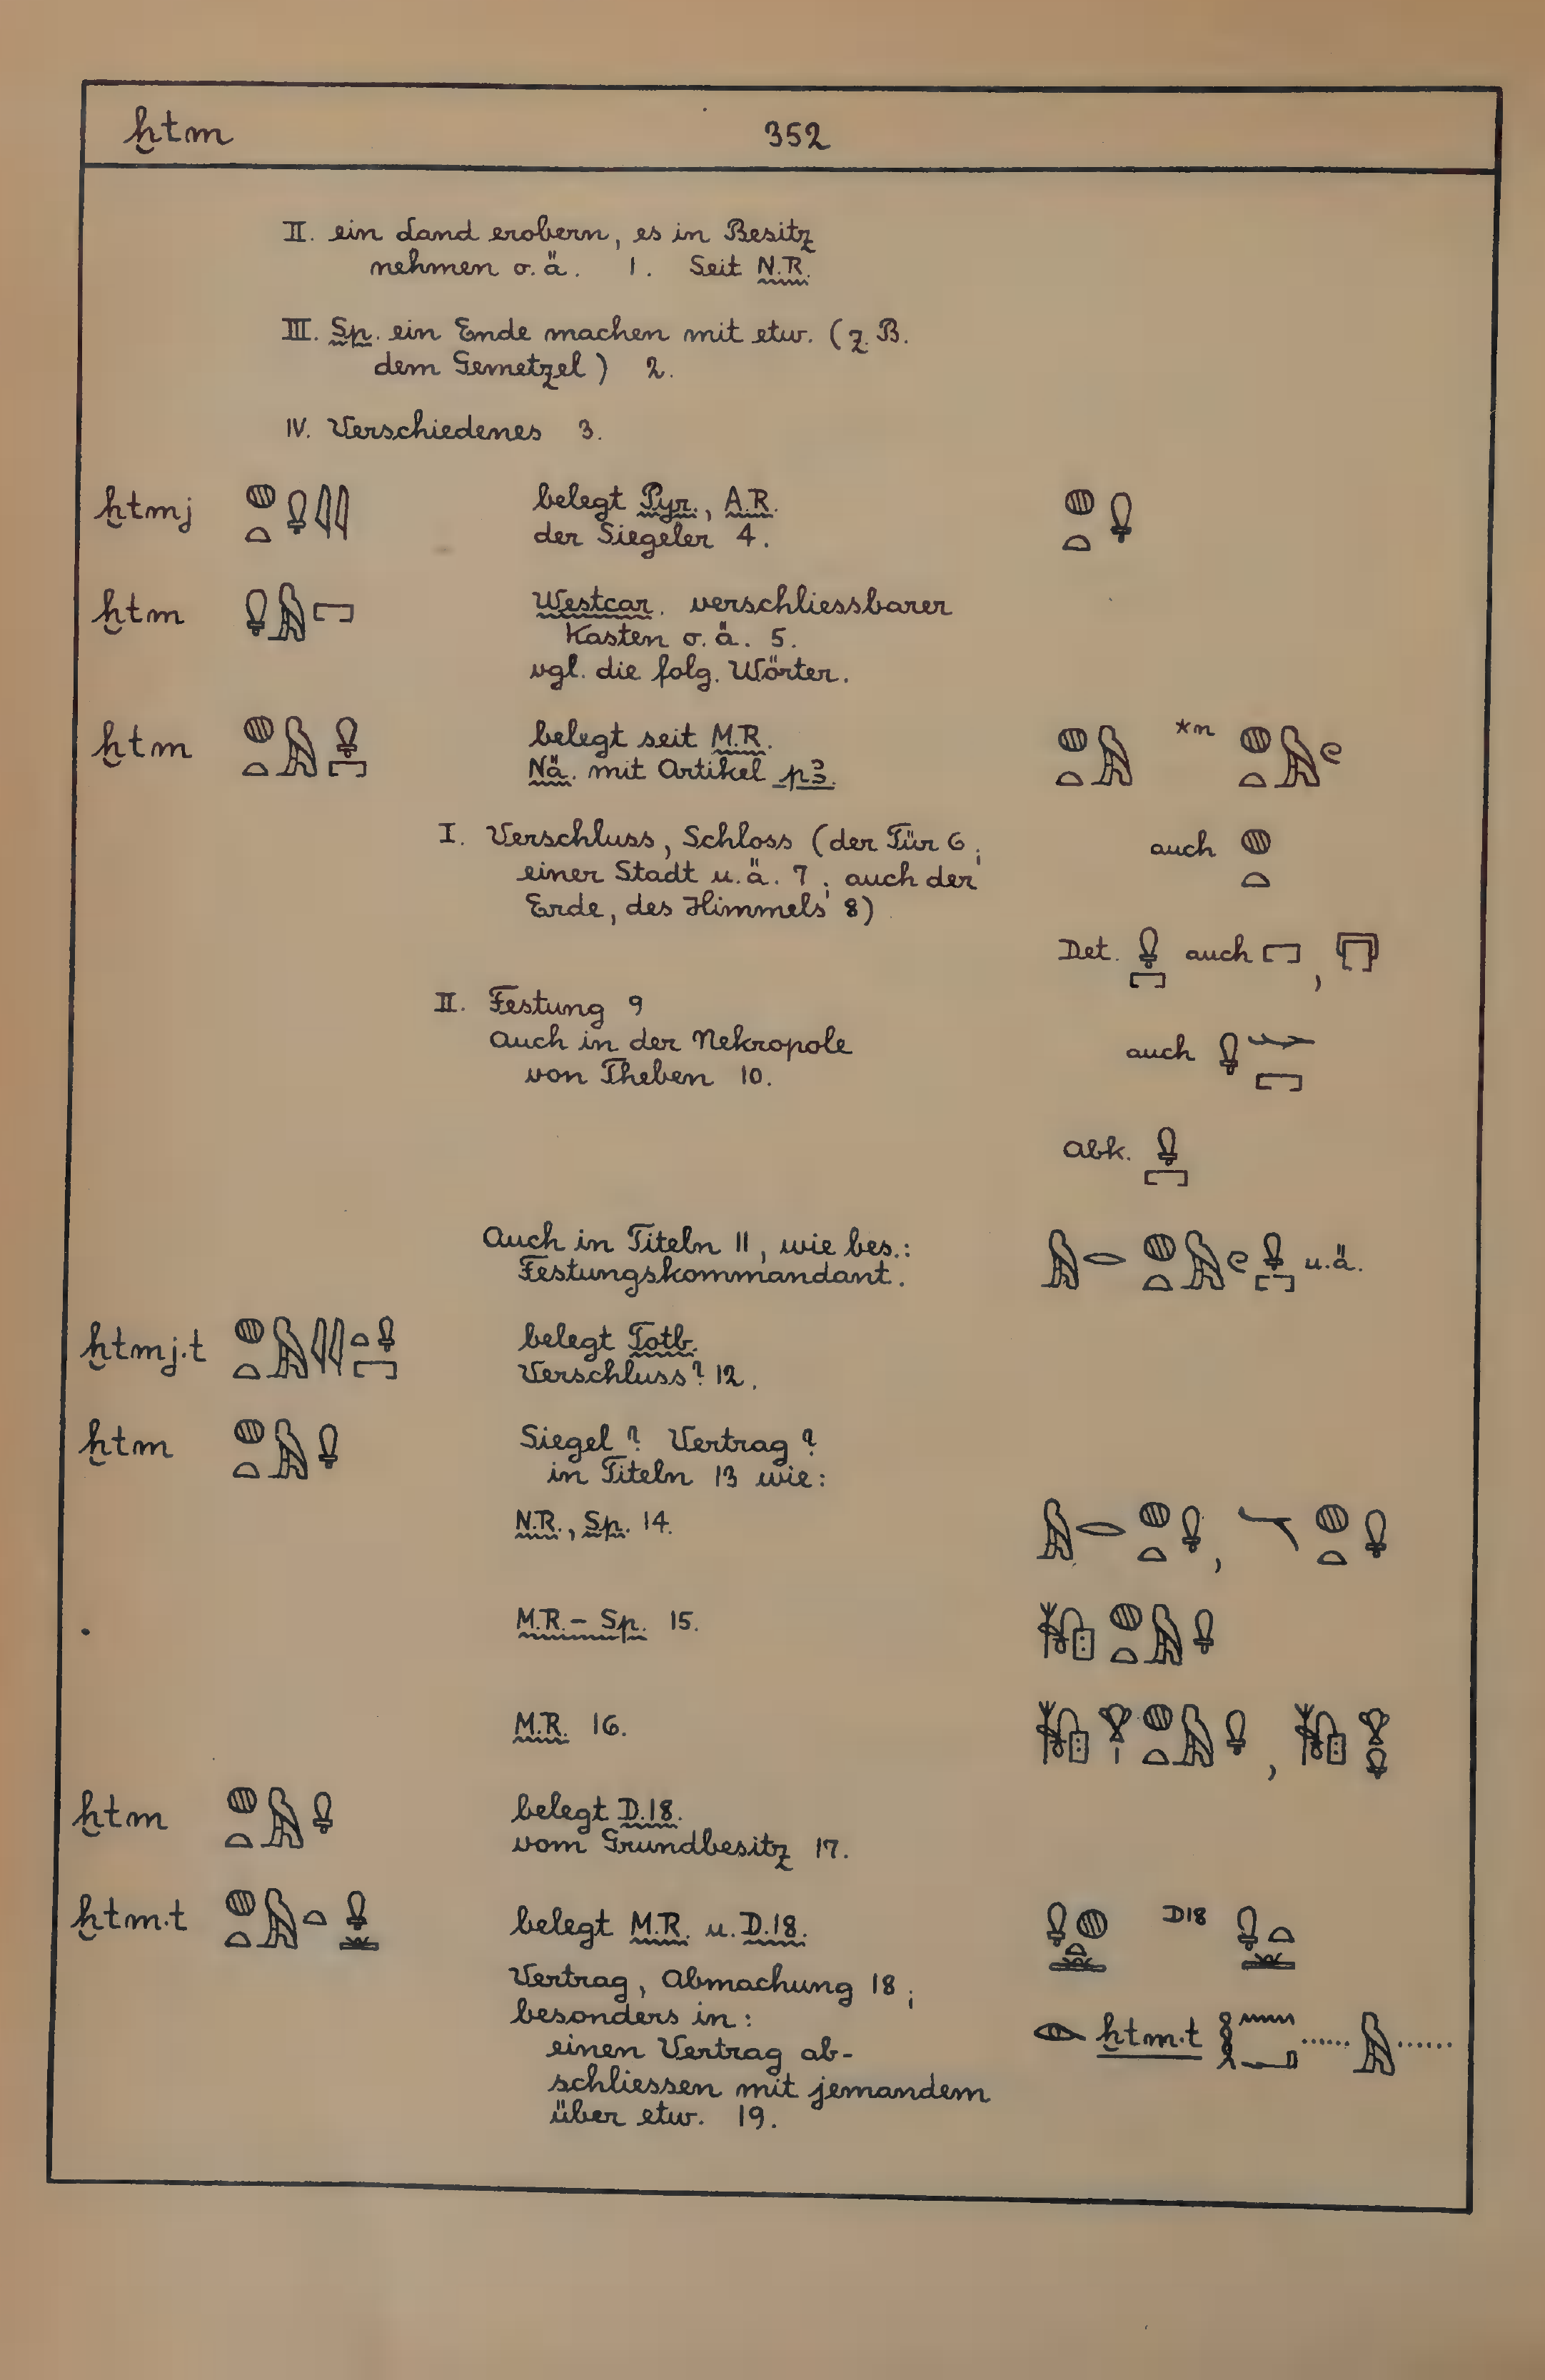 ḫtm 352
II. ein Land erobern, es in Besitz
nehmen o. ä. 1. Seit N.R.
III. Sp. ein Ende machen mit etw. (z. B.
dem Gemetzel) 2.
IV. Verschiedenes 3.
ḫtmj belegt Pyr., A.R.
der Siegeler 4.
ḫtm Westcar. verschliessbarer
Kasten o. ä. 5.
vgl. die folg. Wörter.
ḫtm belegt seit M.R. *n
Nä. mit Artikel pꜣ.
I. Verschluss, Schloss (der Tür 6; auch
einer Stadt u. ä. 7; auch der
Erde, des Himmels 8)
Det. auch ,
II. Festung 9
Auch in der Nekropole auch
von Theben 10.
Abk.
Auch in Titeln 11, wie bes.: u. ä.
Festungskommandant.
ḫtmj.t belegt Totb.
Verschluss? 12.
ḫtm Siegel? Vertrag?
in Titeln 13 wie:
N.R., Sp. 14. ,
M.R. – Sp. 15.
M.R. 16. ,
ḫtm belegt D.18.
vom Grundbesitz 17.
ḫtm.t belegt M.R. u. D.18. D18
Vertrag, Abmachung 18;
besonders in: ḫtm.t ...... ......
einen Vertrag ab-
schliessen mit jemandem
über etw. 19.